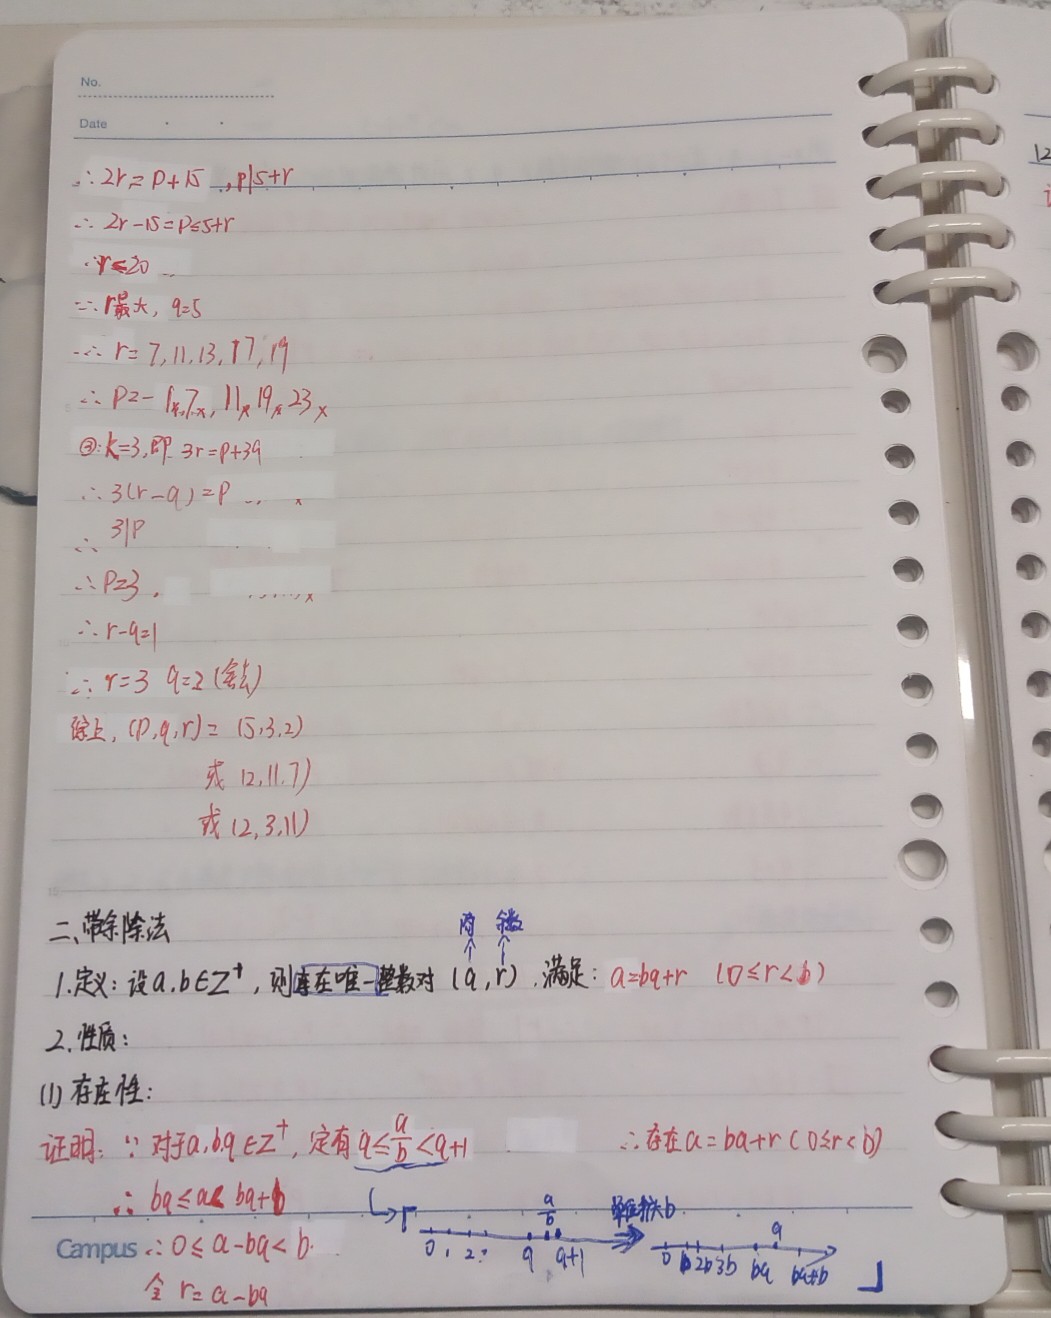 No.
Date
∴ 2r = p+15 , p|5+r
∴ 2r-15=p≤5+r
∴ r≤20
∵ r最大, q=5
∴ r=7,11,13,17,19
∴ p=-1ₓ,7ₓ,11ₓ,19ₓ,23ₓ
③: k=3,即 3r=p+3q
∴ 3(r-q)=p
∴ 3|p
∴ p=3.
∴ r-q=1
∴ r=3 q=2 (舍去)
综上, (p,q,r)= (5,3,2)
或 (2,11,7)
或 (2,3,11)
二、带余除法
商 余数
1.定义: 设a,b∈Z⁺, 则存在唯一整数对 (q,r), 满足: a=bq+r (0≤r<b)
2.性质:
(1) 存在性:
证明: ∵ 对于a,b,q∈Z⁺, 定有 q≤a/b<q+1 ∴存在a=bq+r (0≤r<b)
∴ bq≤a<bq+b
0 1 2 q a/b q+1
0 b 2b 3b bq a bq+b
Campus ∴ 0≤a-bq<b.
令 r=a-bq